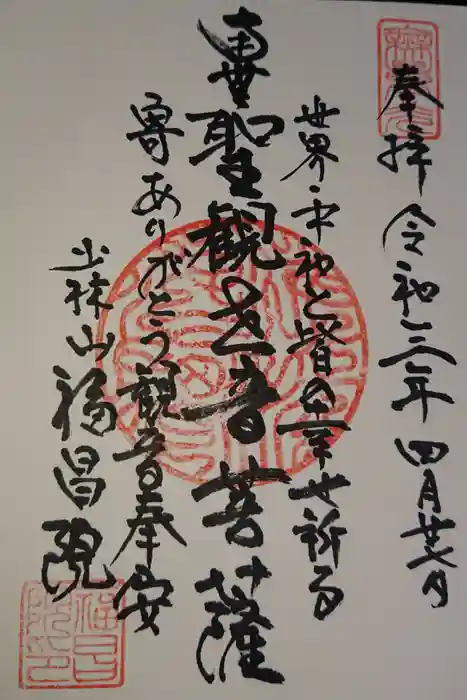 奉拝 令和三年 四月廿七日
世界平和と皆の幸せ祈る
聖観世音菩薩
寄ありがとう観音奉安
少林山福昌院